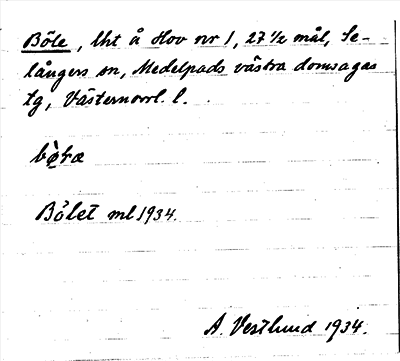 Böle, lht å Hov nr 1, 27 ½ mål, Se-
långers sn, Medelpads västra domsagas
tg, Västernorrl. l.
Bölet ml 1934.
A. Vestlund 1934.